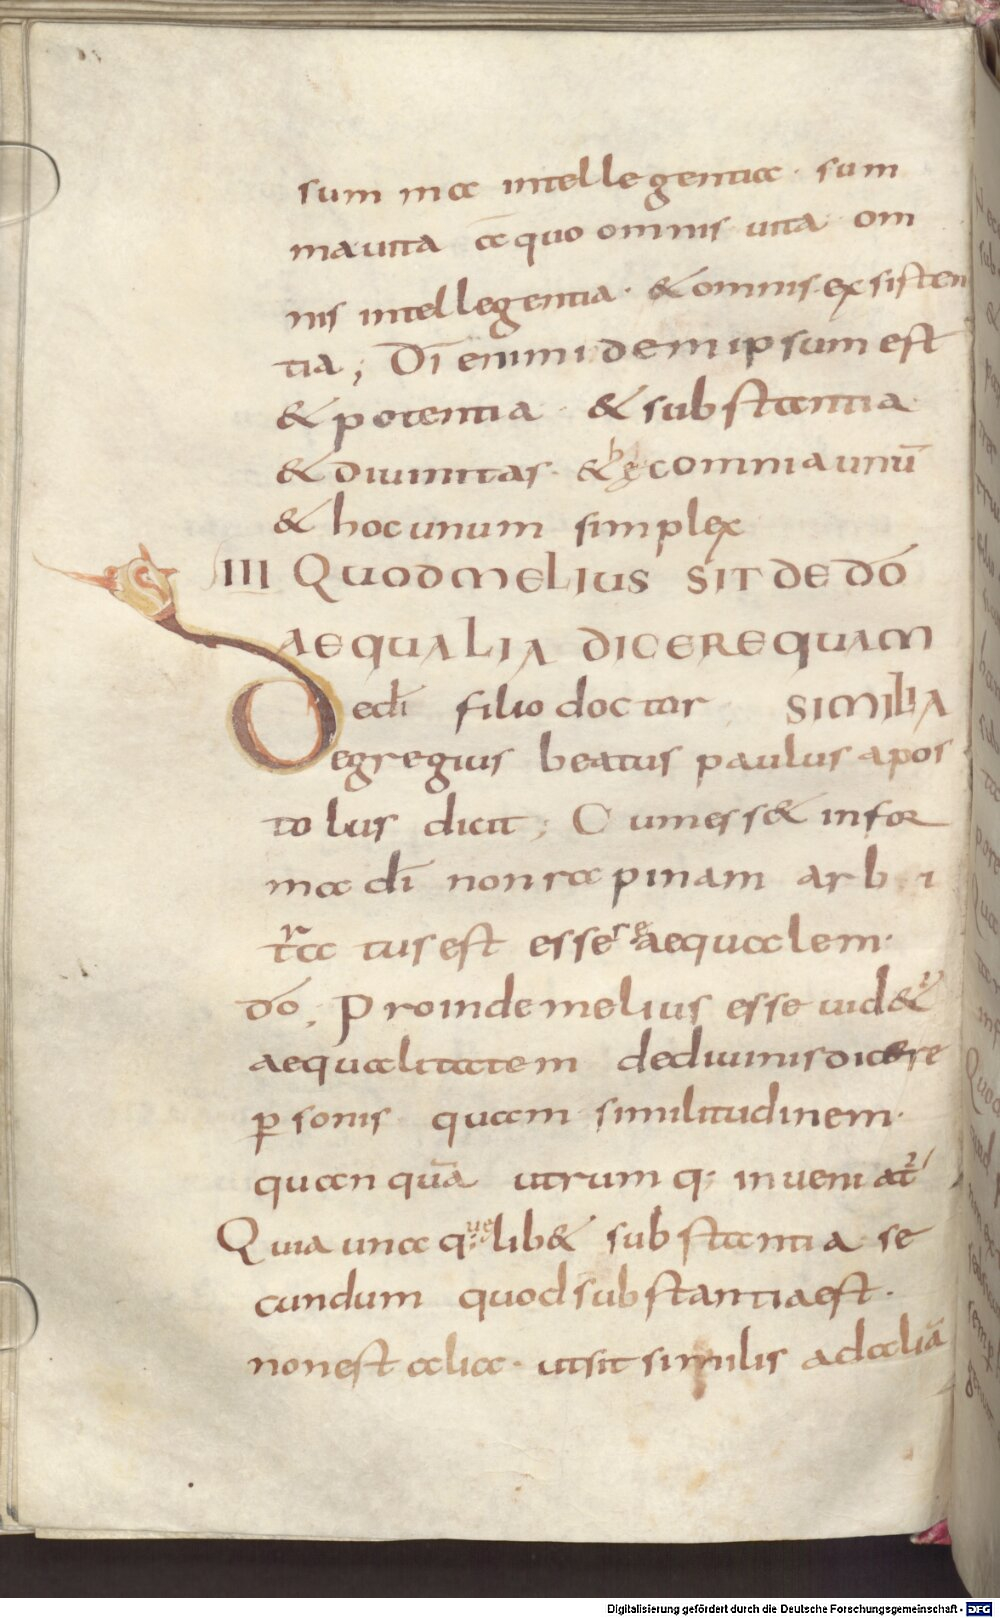 sum ma intellegentia · sum
ma uita a quo omnis uita om
nis intellegentia · & omnis existen
tia ; Di enim idem ipsum est
& potentia · & substantia
& diuinitas · & comnia unū
& hoc unum simplex
III QUOD MELIUS SIT DE DŌ
AEQUALIA DICERE QUAM
De di filio doctor SIMILIA
egregius beatus paulus apos
tolus dicit ; Cum ess& in for
ma di non rapinam arbi
tratus est esse se aequalem ·
dō ; Proinde melius esse uid&ur
aequalitatem de diuinis dicere
psonis quam similitudinem ·
quanquā utrumq; inueniat᷒
Quia unaq;uelib& substantia se
cundum quod substantia est ·
non est alia · ut sit similis ad aliā
Digitalisierung gefördert durch die Deutsche Forschungsgemeinschaft - DFG